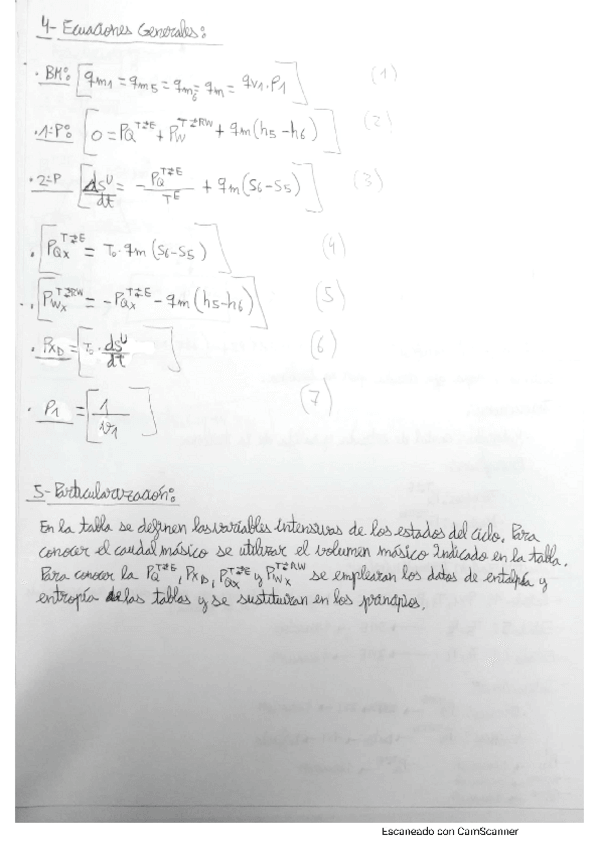 4- Ecuaciones Generales:
· BM: [qm1 = qm5 = qm6 = qm = qv1·ρ1] (1)
· 1ºP: [0 = PQ^T⇄E + PW^T⇄RW + qm(h5-h6)] (2)
· 2ºP [ds^U/dt = - PQ^T⇄E/T^E + qm(s6-s5)] (3)
· [PQx^T⇄E = T0·qm(s6-s5)] (4)
· [PWx^T⇄RW = -PQx^T⇄E - qm(h5-h6)] (5)
· PxD = [T0·ds^U/dt] (6)
· ρ1 = [1/v1] (7)
5- Particularización:
En la tabla se definen las variables intensivas de los estados del ciclo. Para
conocer el caudal másico se utilizar el volumen másico indicado en la tabla.
Para conocer la PQ^T⇄E, PxD, PQx^T⇄E y PWx^T⇄RW se emplearan los datos de entalpía y
entropía de las tablas y se sustituiran en los principios.
Escaneado con CamScanner